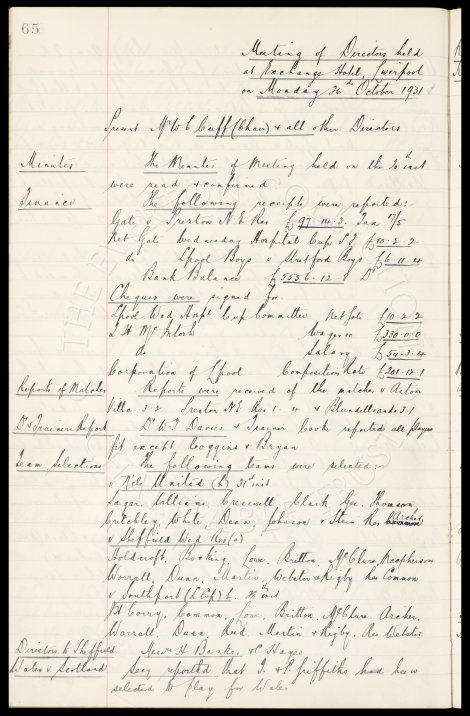 65
Meeting of Directors held
at Exchange Hotel, Liverpool
on Monday 26th October 1931
Present Mr W C Cuff (Chair) & all other Directors
Minutes The Minutes of Meeting held on the 20th inst
were read & confirmed
Finance The following receipts were reported:
Gate v Preston N.E. Res £97.14.3 Tax 7/5
Net Gate Wednesday Hospital Cup S.F. £10.2.2
do Lpool Boys v Stretford Boys £6.11.4
Bank Balance £5556.12.8 Dr
Cheques were signed for
Lpool Wed Hospl Cup Committee Net Gate £10.2.2
T H McIntosh Wages &c £330.0.0
do Salary £54.3.4
Corporation of Lpool Composition Rate £201.12.1
Reports of Matches Reports were received of the matches v Aston
Villa 3-2 Preston N.E. Res 1-4 & Blundellsands 3-1
Dr & Trainers Report Dr W.J. Davies & Trainer Cooke reported all players
fit except Coggins & Bryan
Team Selections The following teams were selected:
v N'cle United (h) 31st inst
Sagar, Williams, Cresswell, Clark, Gee, Thomson,
Critchley, White, Dean, Johnson & Stein Res Archer
v Sheffield Wed Res (a)
Holdcroft, Bocking, Lowe, Britton, McClure, Macpherson
Worrall, Dunn, Martin, Webster & Rigby Res Common
v Southport (L. Cup) h. 28th inst
Corry, Common, Lowe, Britton, McClure, Archer,
Worrall, Dunn, Reid, Martin & Rigby. Res Webster
Directors to Sheffield Messrs H. Banks, & C Hayes
Wales v Scotland Secy reported that T. & P. Griffiths had been
selected to play for Wales